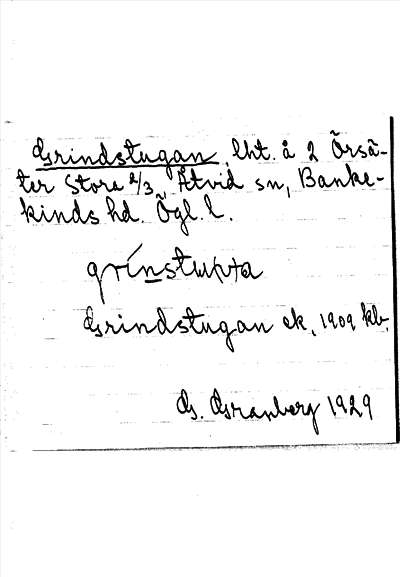 Grindstugan, lht. å 2 Örsä-
ter Stora 2/3, Åtvid sn, Banke-
kinds hd. Ögl. l.
Grindstugan ek. 1909 kb.
G. Granberg 1929